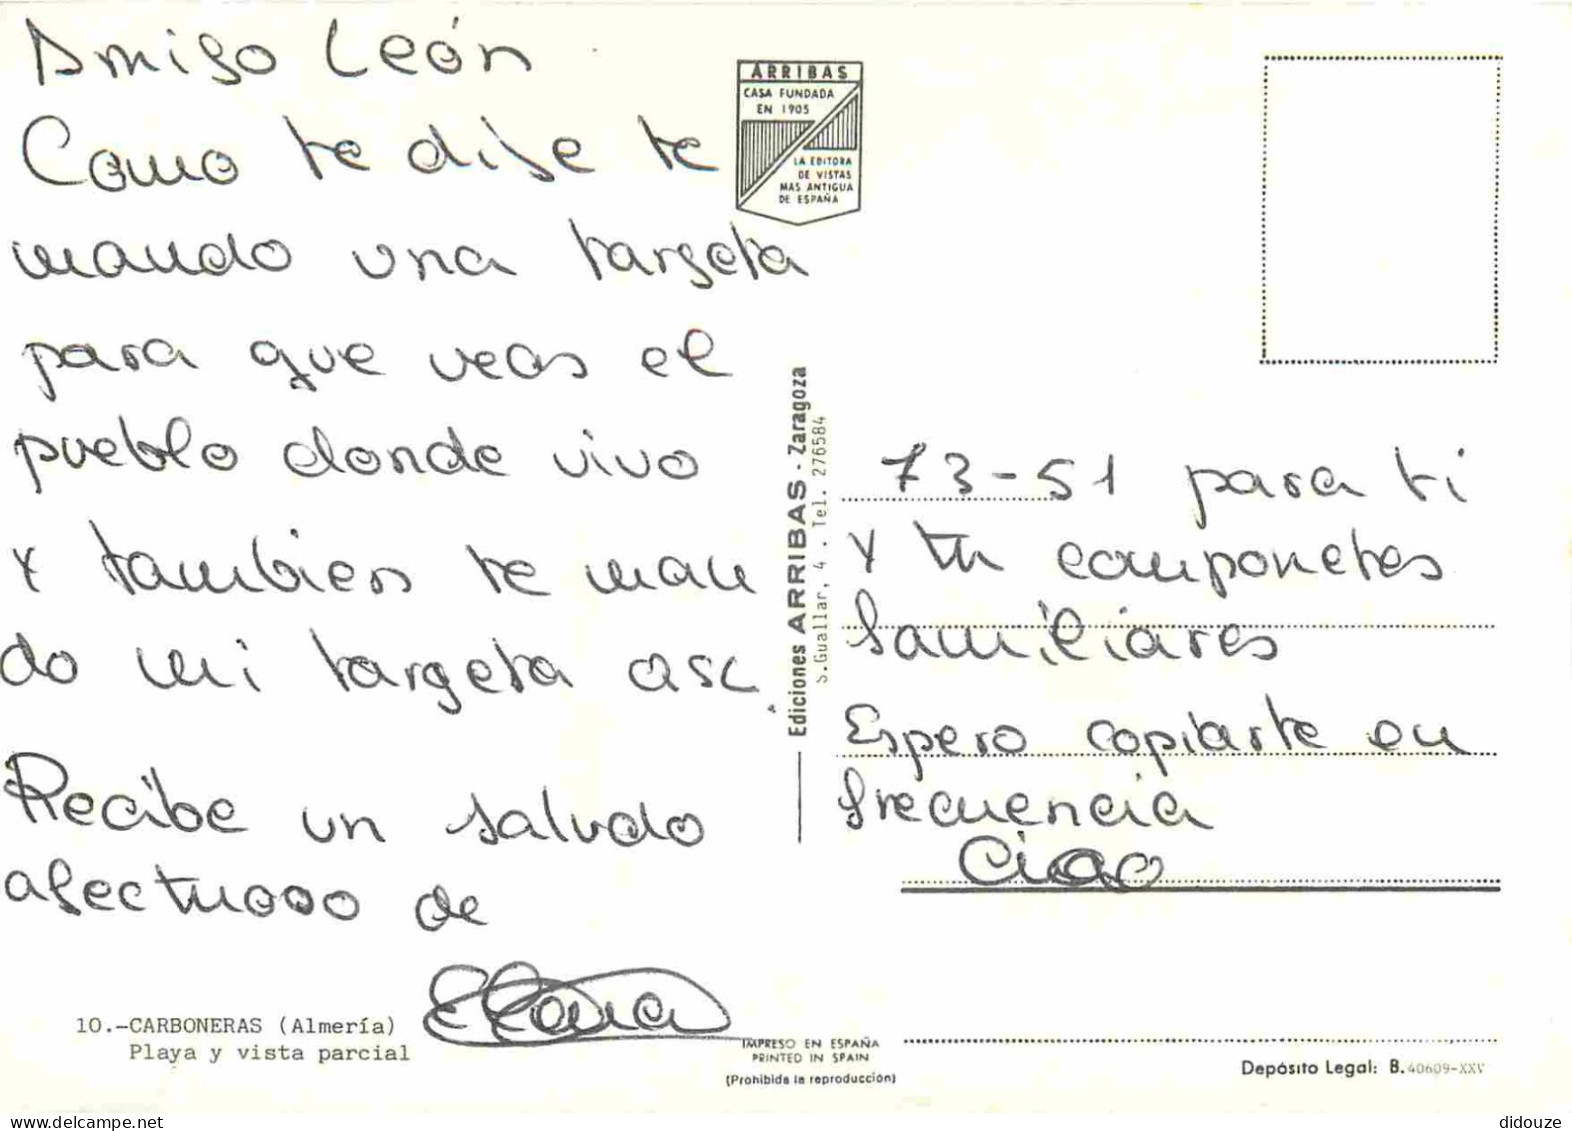 Amigo León
Como te dije te
mando una targeta
para que veas el
pueblo donde vivo
y tambien te man
do mi targeta asc
Recibe un saludo
afectuoso de
Elena
10.-CARBONERAS (Almería)
Playa y vista parcial
ARRIBAS
CASA FUNDADA
EN 1905
LA EDITORA
DE VISTAS
MAS ANTIGUA
DE ESPAÑA
Ediciones ARRIBAS - Zaragoza
S.Guallar, 4 . Tel. 276584
73-51 para ti
y tu componetes
familiares
Espero copiarte en
frecuencia
Ciao
IMPRESO EN ESPAÑA
PRINTED IN SPAIN
(Prohibida la reproducción)
Depósito Legal: B. 40609-XXV
delcampe.net
didouze